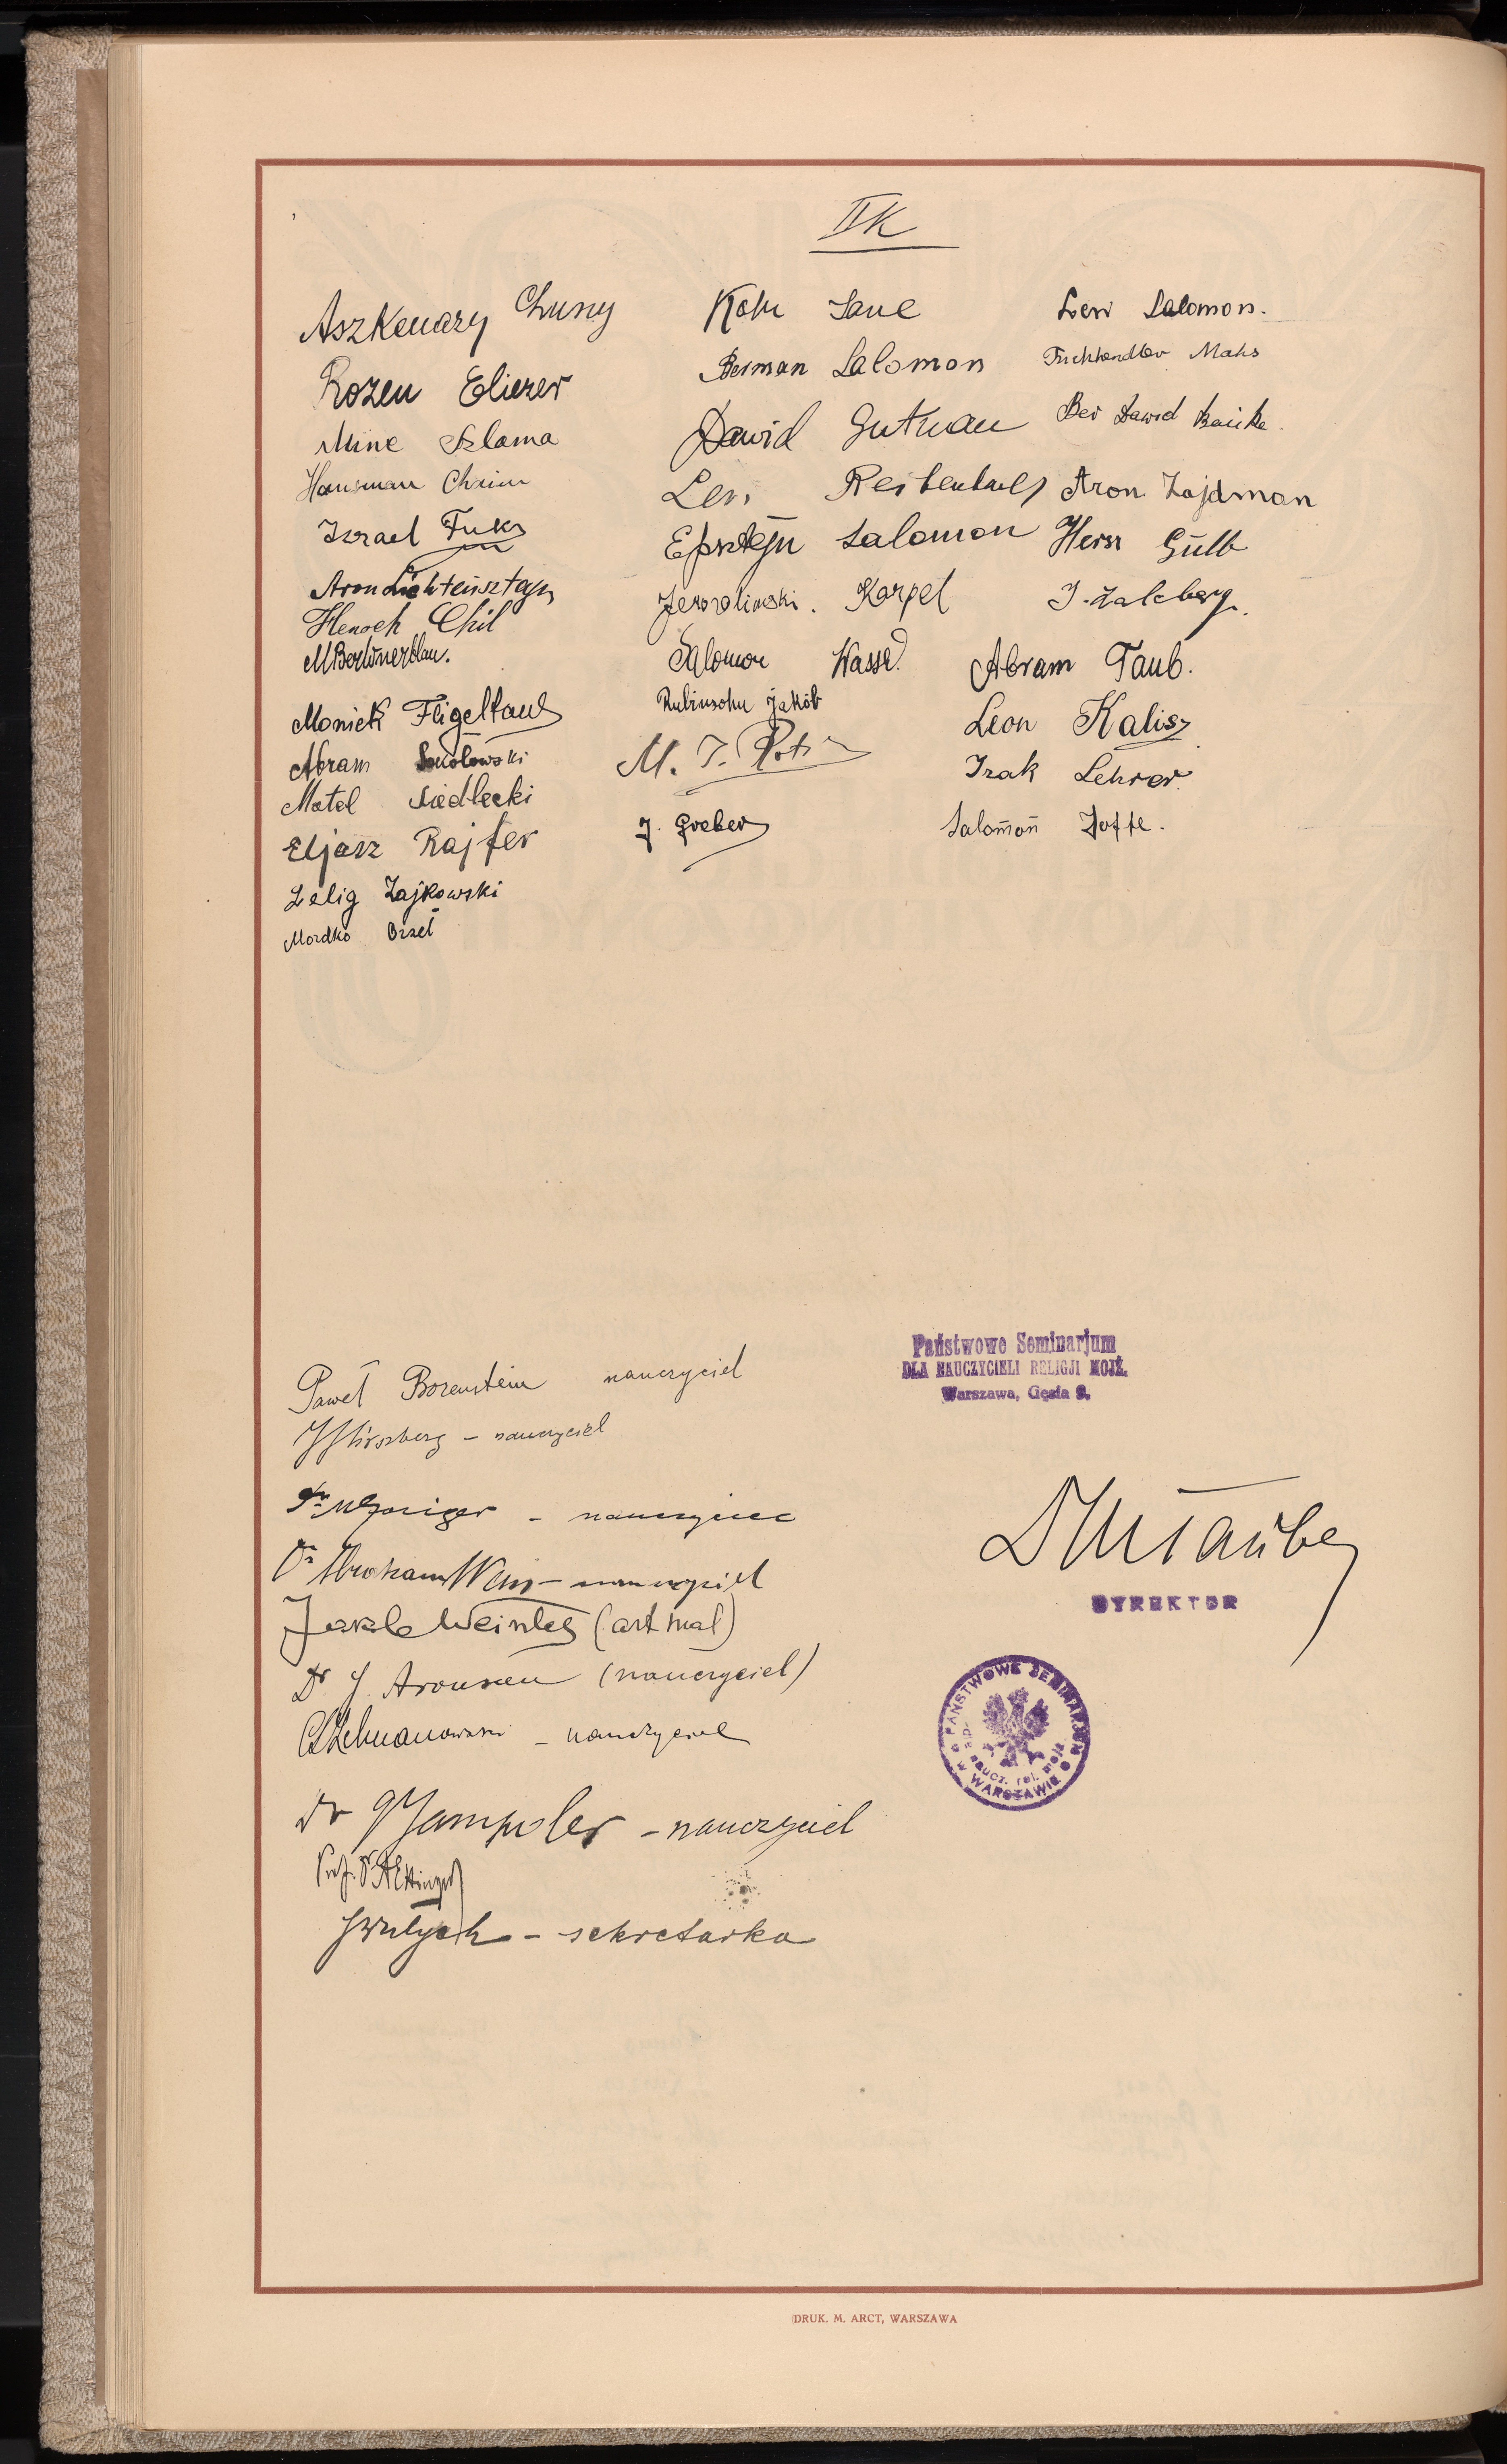 II K
Aszkenazy Chuny
Rozen Eliezer
Mine Szlama
Hausman Chaim
Izrael Fuks
Aron Lichtensztajn
Henoch Chil
M Berlinerblau.
Moniek Fligeltaub
Abram Sokołowski
Motel Siedlecki
Eljasz Rajfer
Zelig Zajkowski
Mordko Orzeł
Kohn Saul
Berman Salomon
Dawid Gutman
Len
Epsztejn Salomon
Jerozolimski. Karpel
Salomon Wasser
Rubinsohn Jakób
M. J.
J. Greber
Lew Salomon.
Fuchhendler Maks
Ber Dawid
Aron Zajdman
Hersz
J. Zalcberg.
Abram Taub.
Leon Kalisz
Izak Lehrer
Salomon Joffe.
Paweł Borensztein nauczyciel
Hirszberg – nauczyciel
Dr – nauczyciel
Dr Abraham Weiss – nauczyciel
(art mal)
Dr J. Aronson (nauczyciel)
– nauczyciel
Dr Jampoler – nauczyciel
Prof. Dr A Ettinger
– sekretarka
Państwowe Seminarjum
DLA NAUCZYCIELI RELIGJI MOJŻ.
Warszawa, Gęsia 9.
DYREKTOR
PAŃSTWOWE SEMINARJUM
naucz. rel. mojż.
W WARSZAWIE
DRUK. M. ARCT, WARSZAWA